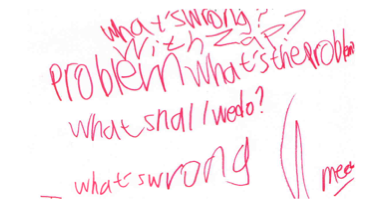 what'swrong?
WithZap?
ProblemWhat'stheproblem
whatshallwedo?
what'swrong
meet